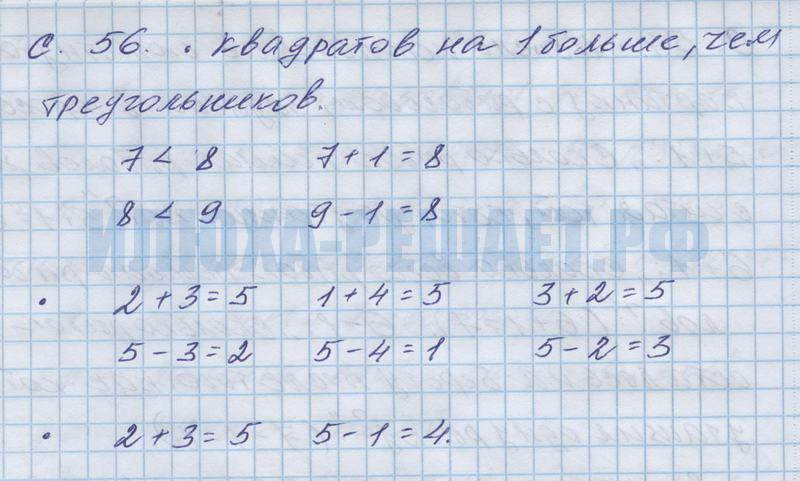 с. 56. • квадратов на 1 больше, чем
треугольников.
7 < 8 7 + 1 = 8
8 < 9 9 - 1 = 8
ИЛЮХА-РЕШАЕТ.РФ
• 2 + 3 = 5 1 + 4 = 5 3 + 2 = 5
5 - 3 = 2 5 - 4 = 1 5 - 2 = 3
• 2 + 3 = 5 5 - 1 = 4.